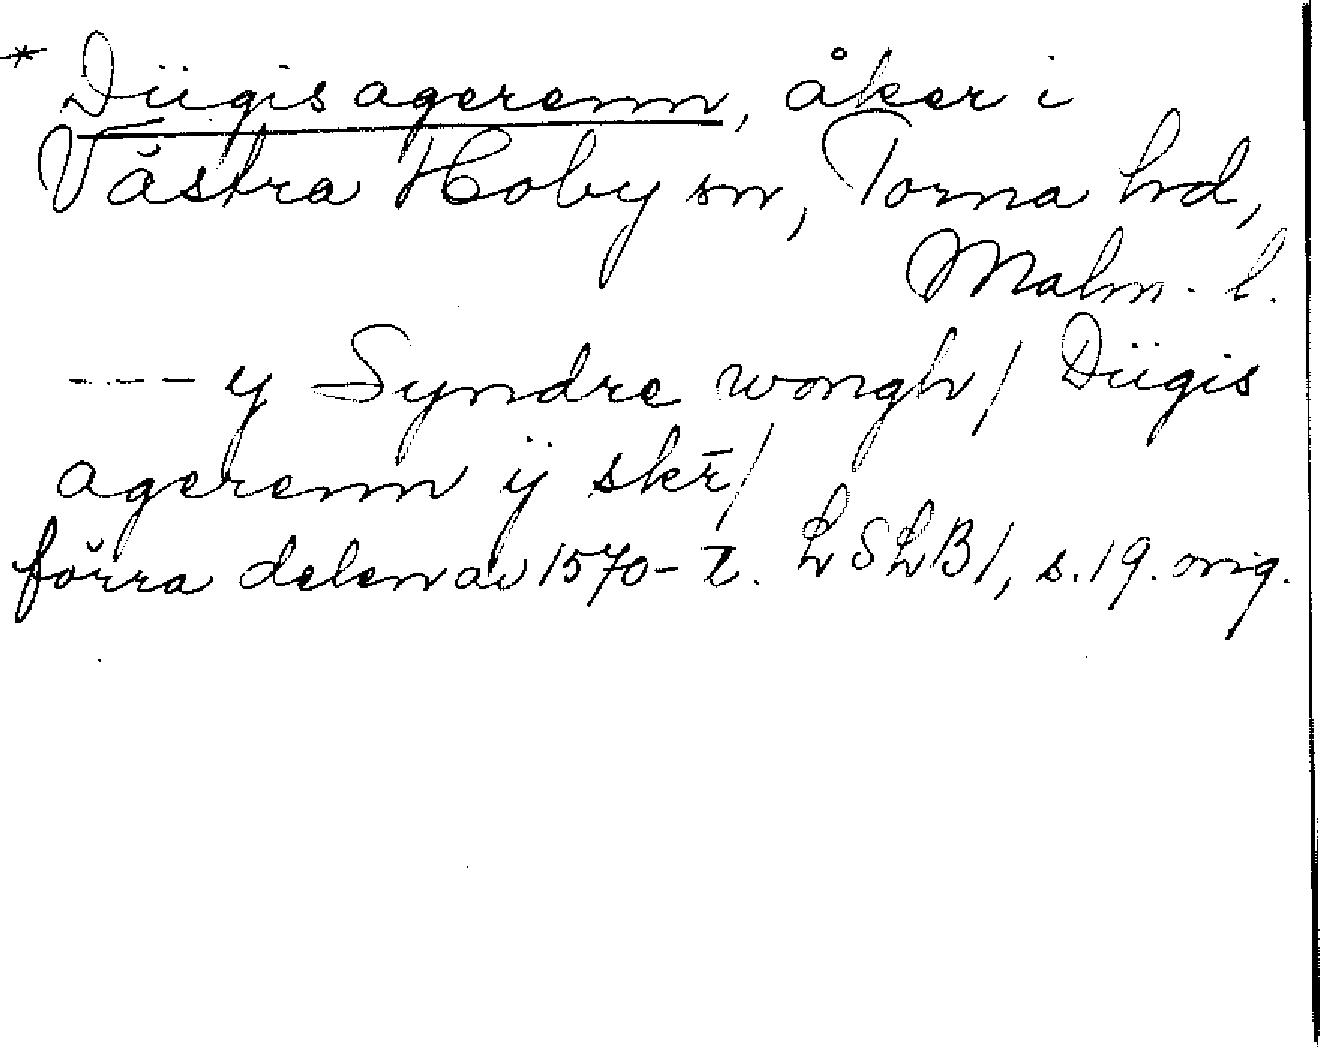 * Diigis agerenn, åker i
Västra Hoby sn, Torna hd,
Malm. l.
--- y Syndre wongh / Diigis
agerenn ÿ skr̄ /
förra delen av 1570-t. LSLB 1, s. 19. orig.